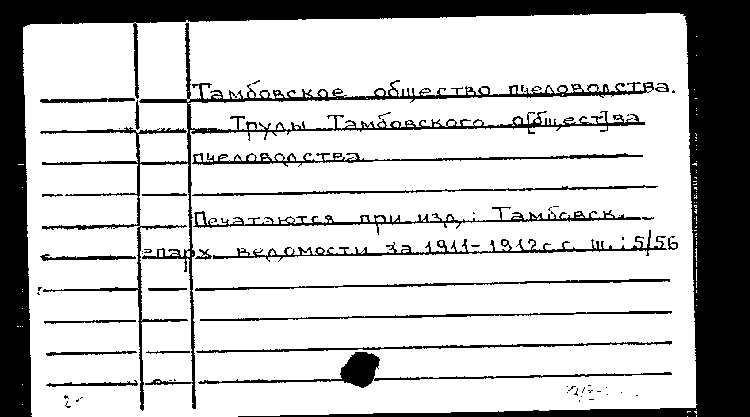 Тамбовское общество пчеловодства.
Труды Тамбовского о[бщест]ва
пчеловодства
Печатаются при изд.: Тамбовск.
епарх. ведомости за 1911-1912 г. с. ш.: 5/56